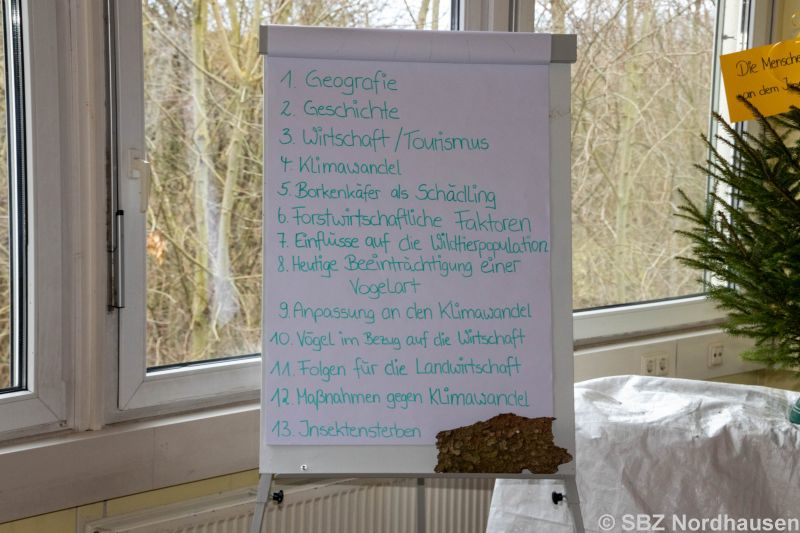 1. Geografie
2. Geschichte
3. Wirtschaft/Tourismus
4. Klimawandel
5. Borkenkäfer als Schädling
6. Forstwirtschaftliche Faktoren
7. Einflüsse auf die Wildtierpopulation
8. Heutige Beeinträchtigung einer
Vogelart
9. Anpassung an den Klimawandel
10. Vögel im Bezug auf die Wirtschaft
11. Folgen für die Landwirtschaft
12. Maßnahmen gegen Klimawandel
13. Insektensterben
Die Mensche
an dem
© SBZ Nordhausen